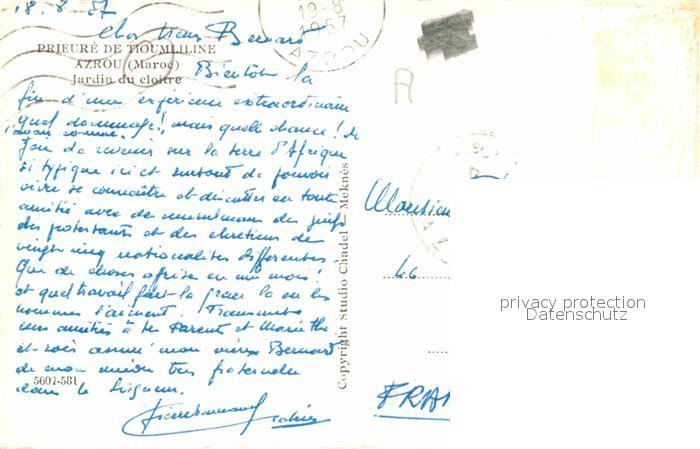 18.8.57
Cher vieux Bernard
PRIEURÉ DE TIOUMLILINE
AZROU (Maroc)
Jardin du cloître
Bientôt la
fin d'une expérience extraordinaire
quel dommage! mais quelle chance! de
vous comme
joie de revenir sur la terre d'Afrique
si typique ici et surtout de pouvoir
vivre se connaître et discuter en toute
amitié avec des musulmans des juifs
des protestants et des chrétiens de
vingt cinq nationalités différentes.
Que de choses apprises en un mois!
et quel travail fait là la grâce là où les
hommes s'aiment. Transmets
mes amitiés à tes Parents et Marie Th.
et sois assuré mon vieux Bernard
de mon union très fraternelle
dans le Seigneur.
5602-581
Copyright Studio Chadel Meknès
19-8
1957
AZROU
A
Monsieur
46
FRAN
privacy protection
Datenschutz